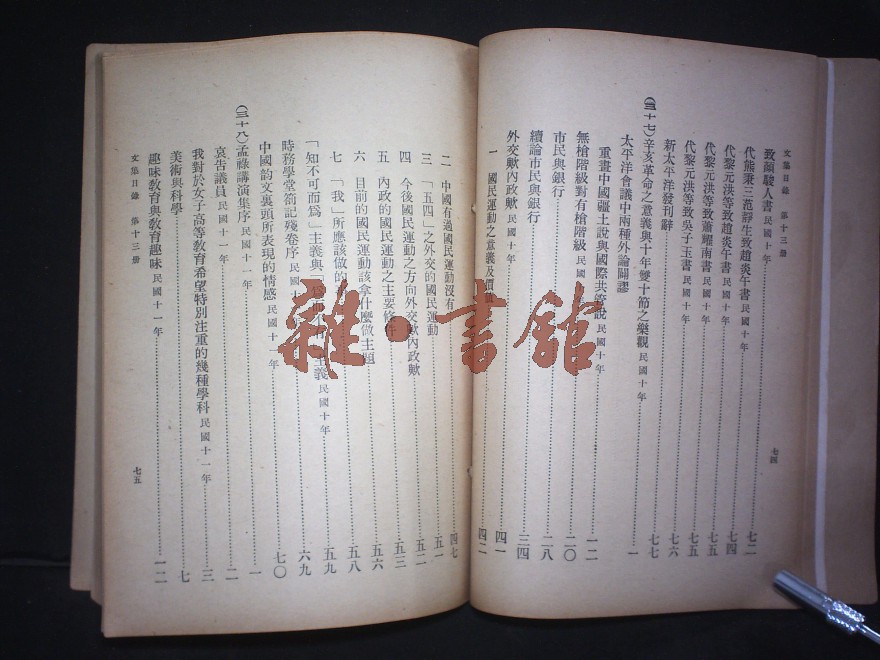 文集目錄　第十三册
七四
致顏駿人書 民國十年 七二
代熊秉三范靜生致趙炎午書 民國十年 七四
代黎元洪等致趙炎午書 民國十年 七五
代黎元洪等致蕭耀南書 民國十年 七五
代黎元洪等致吳子玉書 民國十年 七六
新太平洋發刊辭 七七
(三十七) 辛亥革命之意義與十年雙十節之樂觀 民國十年 一
太平洋會議中兩種外論闢謬
重畫中國疆土說與國際共管說 民國十年 一二
無槍階級對有槍階級 民國十年 二〇
市民與銀行 二八
續論市民與銀行 三四
外交歟內政歟 民國十年 四一
一　國民運動之意義及價值 四二
二　中國有過國民運動沒有 四七
三　「五四」之外交的國民運動 五一
四　今後國民運動之方向外交歟內政歟 五二
五　內政的國民運動之主要條件 五三
六　目前的國民運動該拿什麼做主題 五六
七　「我」所應該做的 五八
「知不可而爲」主義與「爲而不有」主義 民國十年 五九
時務學堂箚記殘卷序 民國十 六九
中國韵文裏頭所表現的情感 民國十一年 七〇
(三十八) 孟祿講演集序 民國十一年 一
哀告議員 民國十一年 二
我對於女子高等教育希望特別注重的幾種學科 民國十一年 三
美術與科學 七
趣味教育與教育趣味 民國十一年 一二
文集目錄　第十三册
七五
雜·書館